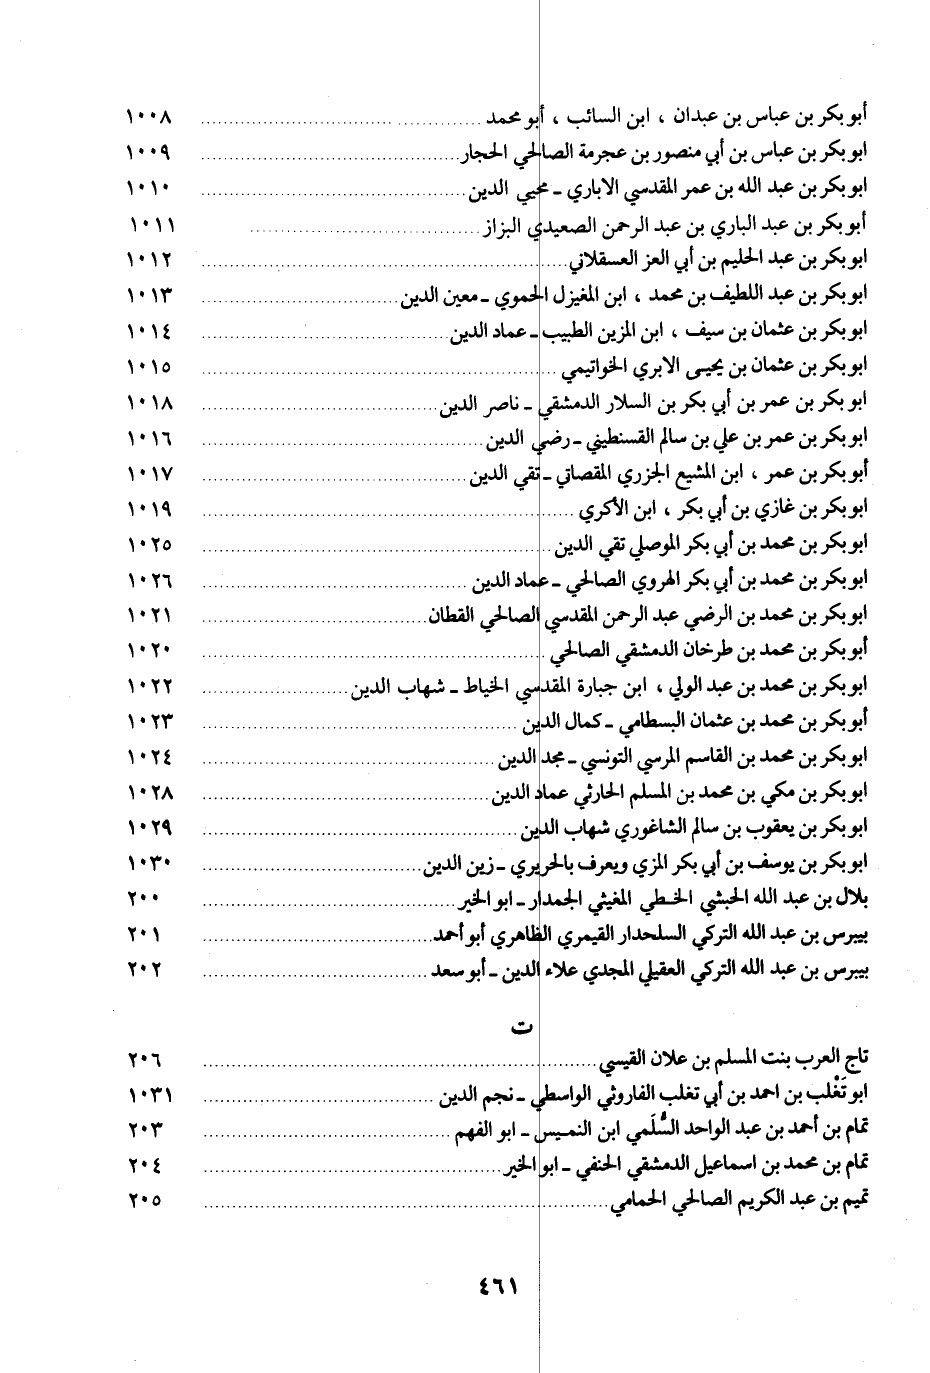 أبو بكر بن عباس بن عبدان ، ابن السائب ، أبو محمد ........ ١٠٠٨
ابو بكر بن عباس بن أبي منصور بن عجرمة الصالحي الحجار ........ ١٠٠٩
ابو بكر بن عبد الله بن عمر المقدسي الاباري ـ محيي الدين ........ ١٠١٠
أبو بكر بن عبد الباري بن عبد الرحمن الصعيدي البزاز ........ ١٠١١
ابو بكر بن عبد الحليم بن أبي العز العسقلاني ........ ١٠١٢
ابو بكر بن عبد اللطيف بن محمد ، ابن المغيزل الحموي ـ معين الدين ........ ١٠١٣
ابو بكر بن عثمان بن سيف ، ابن المزين الطبيب ـ عماد الدين ........ ١٠١٤
ابو بكر بن عثمان بن يحيى الابري الخواتيمي ........ ١٠١٥
ابو بكر بن عمر بن أبي بكر بن السلار الدمشقي ـ ناصر الدين ........ ١٠١٨
ابو بكر بن عمر بن علي بن سالم القسنطيني ـ رضي الدين ........ ١٠١٦
أبو بكر بن عمر ، ابن المشيع الجزري المقصاتي ـ تقي الدين ........ ١٠١٧
ابو بكر بن غازي بن أبي بكر ، ابن الأكري ........ ١٠١٩
ابو بكر بن محمد بن أبي بكر الموصلي تقي الدين ........ ١٠٢٥
ابو بكر بن محمد بن أبي بكر الهروي الصالحي ـ عماد الدين ........ ١٠٢٦
ابو بكر بن محمد بن الرضي عبد الرحمن المقدسي الصالحي القطان ........ ١٠٢١
أبو بكر بن محمد بن طرخان الدمشقي الصالحي ........ ١٠٢٠
ابو بكر بن محمد بن عبد الولي ، ابن جبارة المقدسي الخياط ـ شهاب الدين ........ ١٠٢٢
أبو بكر بن محمد بن عثمان البسطامي ـ كمال الدين ........ ١٠٢٣
ابو بكر بن محمد بن القاسم المرسي التونسي ـ مجد الدين ........ ١٠٢٤
ابو بكر بن مكي بن محمد بن المسلم الحارثي عماد الدين ........ ١٠٢٨
ابو بكر بن يعقوب بن سالم الشاغوري شهاب الدين ........ ١٠٢٩
ابو بكر بن يوسف بن أبي بكر المزي ويعرف بالحريري ـ زين الدين ........ ١٠٣٠
بلال بن عبد الله الحبشي الخطي المغيثي الجمدار ـ ابو الخير ........ ٢٠٠
بيبرس بن عبد الله التركي السلحدار القيمري الظاهري أبو أحمد ........ ٢٠١
بيبرس بن عبد الله التركي العقيلي المجدي علاء الدين ـ أبو سعد ........ ٢٠٢
ت
تاج العرب بنت المسلم بن علان القيسي ........ ٢٠٦
ابو تَغْلب بن احمد بن أبي تغلب الفاروثي الواسطي ـ نجم الدين ........ ١٠٣١
تمام بن أحمد بن عبد الواحد السُّلَمي ابن النميس ـ ابو الفهم ........ ٢٠٣
تمام بن محمد بن اسماعيل الدمشقي الحنفي ـ ابو الخير ........ ٢٠٤
تميم بن عبد الكريم الصالحي الحمامي ........ ٢٠٥
٤٦١